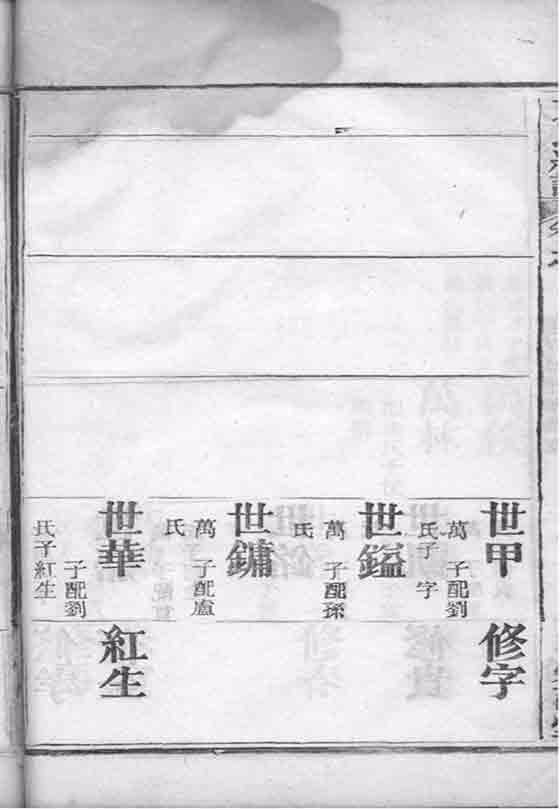 世甲
萬　子配劉
氏子　字
世鎰
萬　子配孫
氏
世鏞
萬　子配盧
氏
世華
子配劉
氏子紅生
修字
紅生